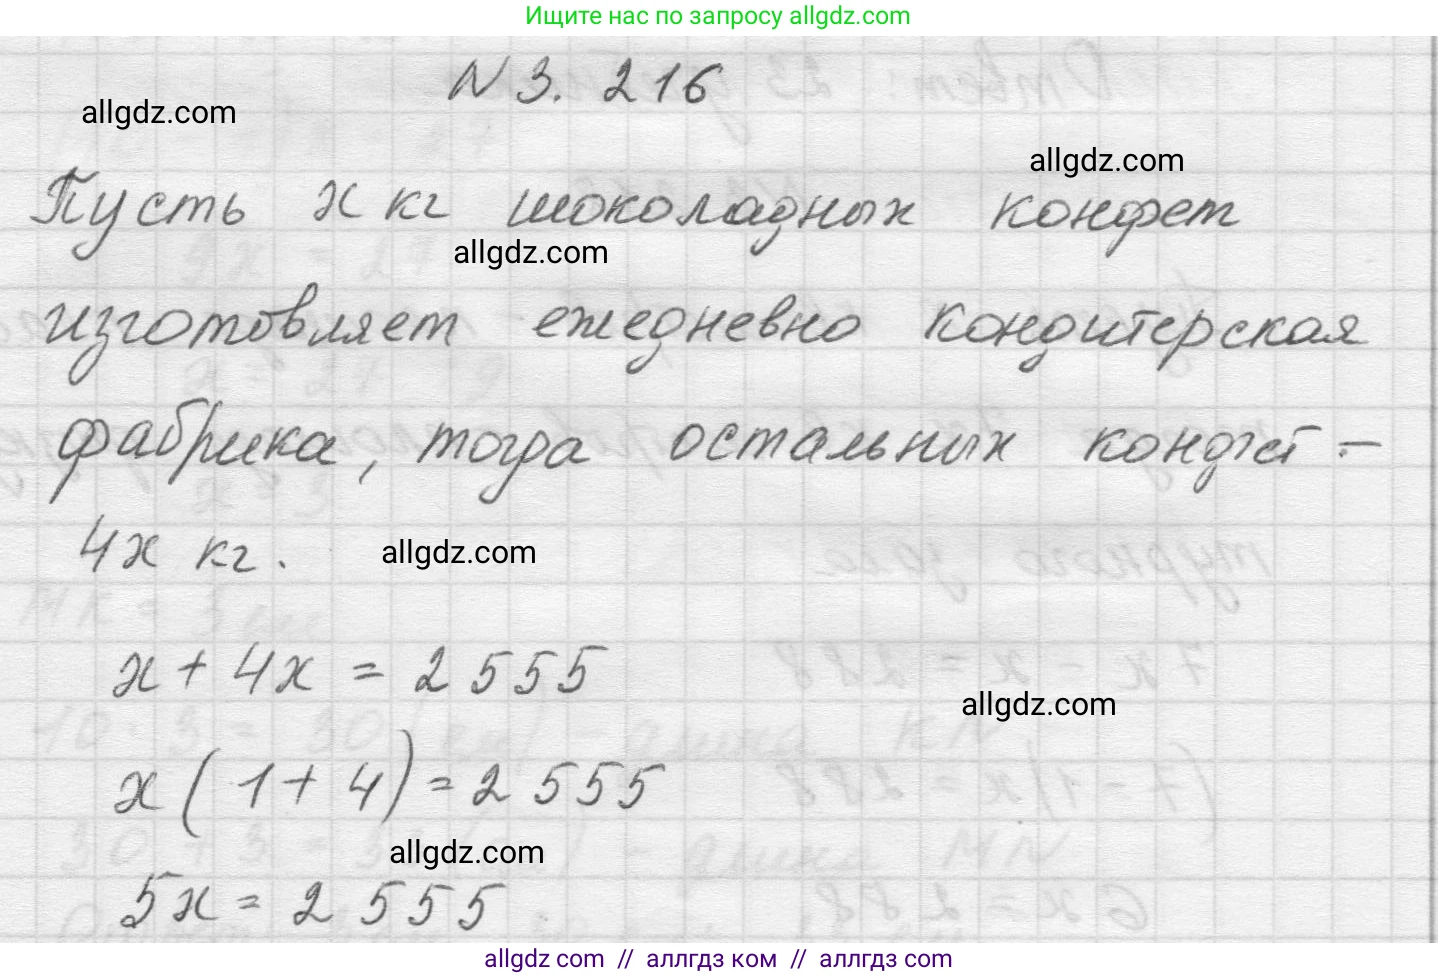 Ищите нас по запросу allgdz.com
N 3. 216
allgdz.com
allgdz.com
Пусть х кг шоколадных конфет
allgdz.com
изготовляет ежедневно кондитерская
фабрика, тогда остальных конфет –
4х кг.
allgdz.com
х + 4х = 2555
allgdz.com
х (1 + 4) = 2555
allgdz.com
5х = 2555
allgdz com // аллгдз ком // аллгдз com